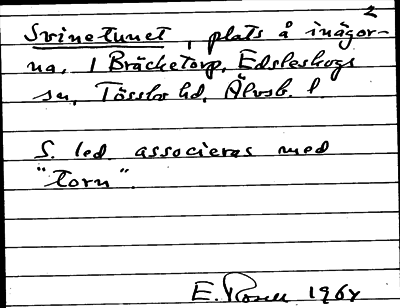 2
Svinetunet, plats å inägor-
na, 1 Bräcketorp, Edsleskogs
sn, Tössbo hd, Älvsb. l
S. led. associeras med
"torn".
E. Rosell 1964